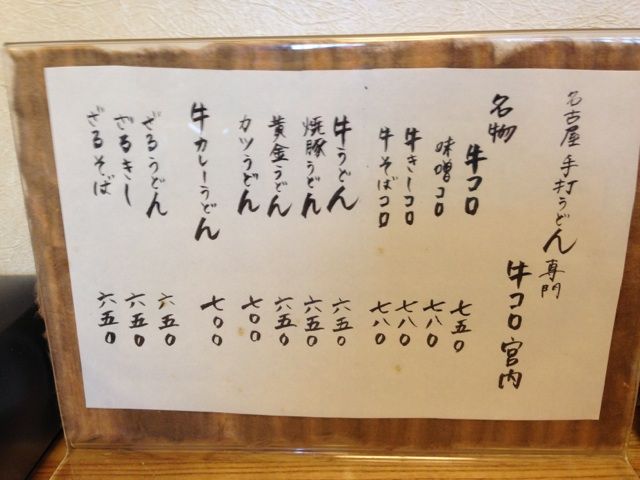 名古屋手打うどん専門
名物 牛コロ 宮内
牛コロ 七五〇
味噌コロ 七八〇
牛きしコロ 七八〇
牛そばコロ 七八〇
牛うどん 六五〇
焼豚うどん 六五〇
黄金うどん 六五〇
カツうどん 七〇〇
牛カレーうどん 七〇〇
ざるうどん 六五〇
ざるきし 六五〇
ざるそば 六五〇